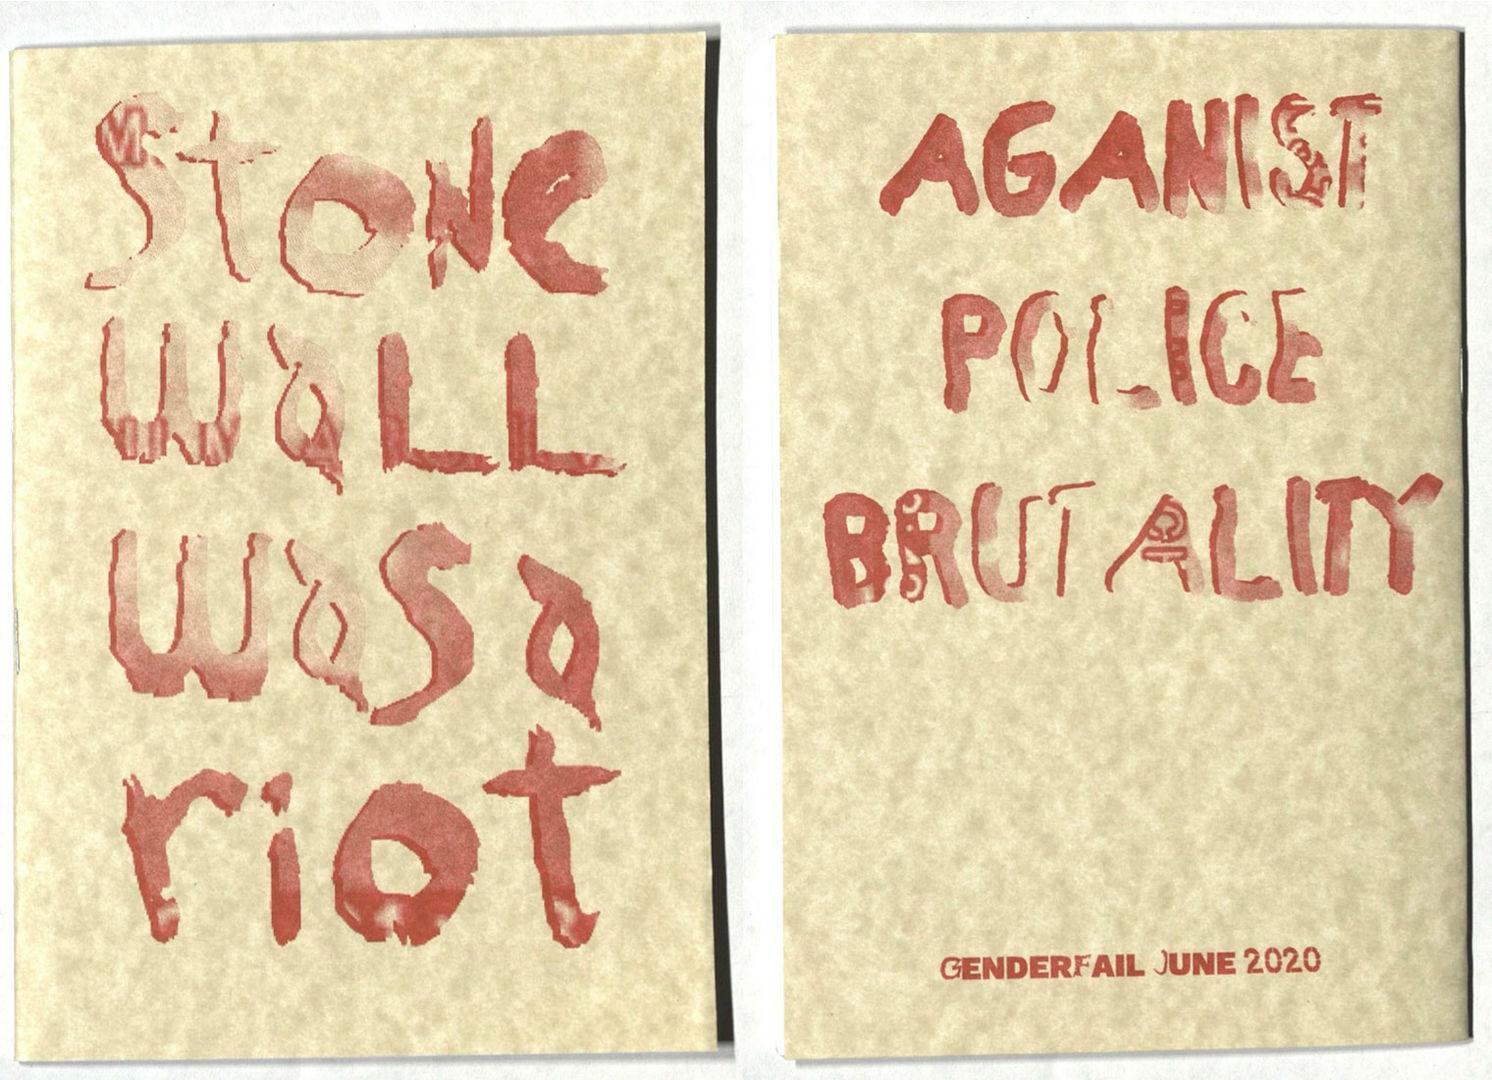 Stone
waLL
was a
riot
AGANIST
POLICE
BRUTALITY
GENDERFAIL JUNE 2020